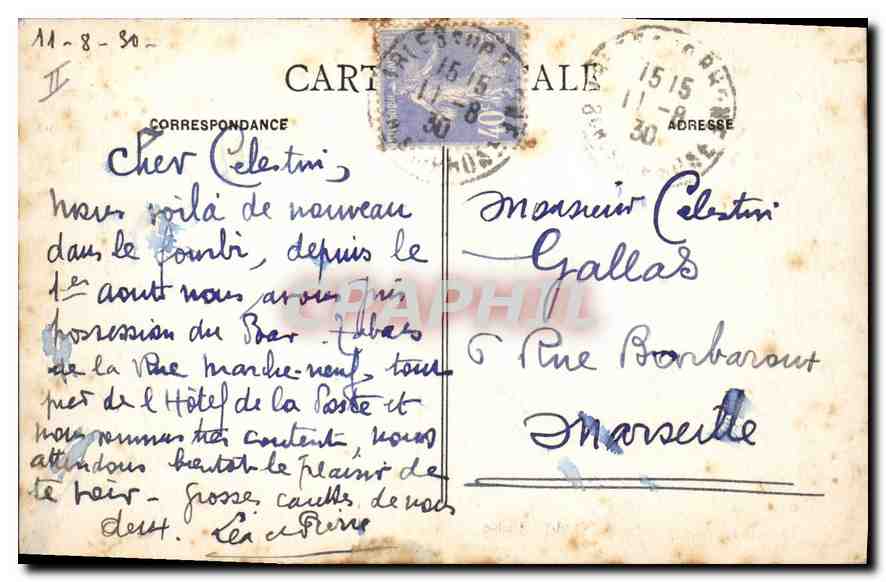 11-8-30-
II
CARTE POSTALE
CORRESPONDANCE
ADRESSE
15 15
11-8
30
40c
15 15
11-8
30
Cher Celestin,
nous voilà de nouveau
dans le fourbi, depuis le
1er aout nous avons pris
possession du Bar-Tabacs
de la Rue Marché-neuf, tout
près de l'Hôtel de la Poste et
nous sommes très content, nous
attendons bientot le plaisir de
te voir - grosses de nous
deux. Léa et Pierre
Monsieur Celestin
Gallas
6 Rue Barbaroux
Marseille
CPAPHIL